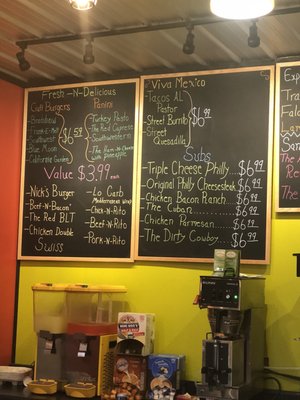 Fresh-N-Delicious
Craft Burgers
Southwest
Blue Moon
California Gamble
$6.59
Panini
-Turkey Pesto
-The Red Caprese
-Southwestern
-The Ham-N-Cheese
with pineapple
Value $3.99 each
-Nick's Burger
-Beef-N-Bacon
-The Red BLT
-Chicken Double
Swiss
-Lo Carb
-Chick-N-Rito
-Beef-N-Rito
-Pork-N-Rito
Viva Mexico
-Tacos Al
Pastor
-Street Burrito
-Street
Quesadilla
$6.99
Subs
-Triple Cheese Philly $6.99
-Original Philly Cheesesteak $6.99
-Chicken Bacon Ranch $6.99
-The Cuban $6.99
-Chicken Parmesan $6.99
-The Dirty Cowboy $6.99